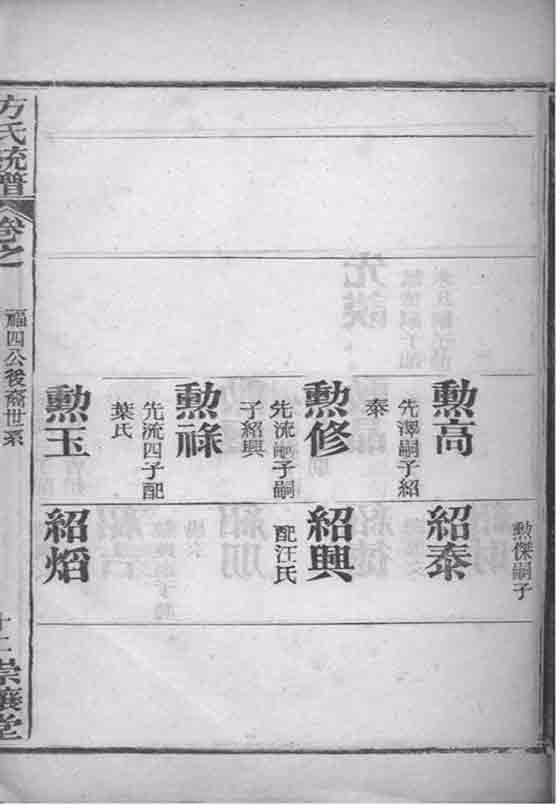 勳高
先澤嗣子紹
泰
勳修
先流嗣子嗣
子紹興
勳祿
先流四子配
葉氏
勳玉
勳傑嗣子
紹泰
紹興
配汪氏
紹熖
方氏統譜
卷之
福四公後裔世系
崇讓堂